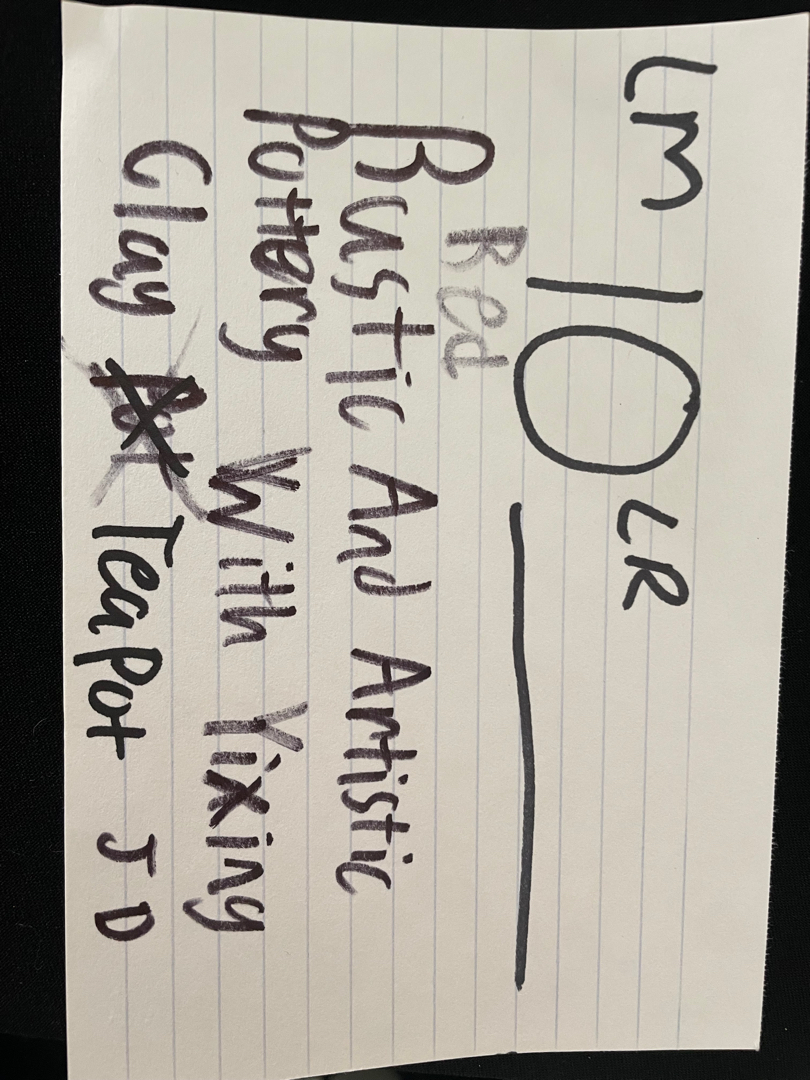 LM 10 LR
Red
Bustic And Artistic
Pottery With Yixing
Clay Teapot JD